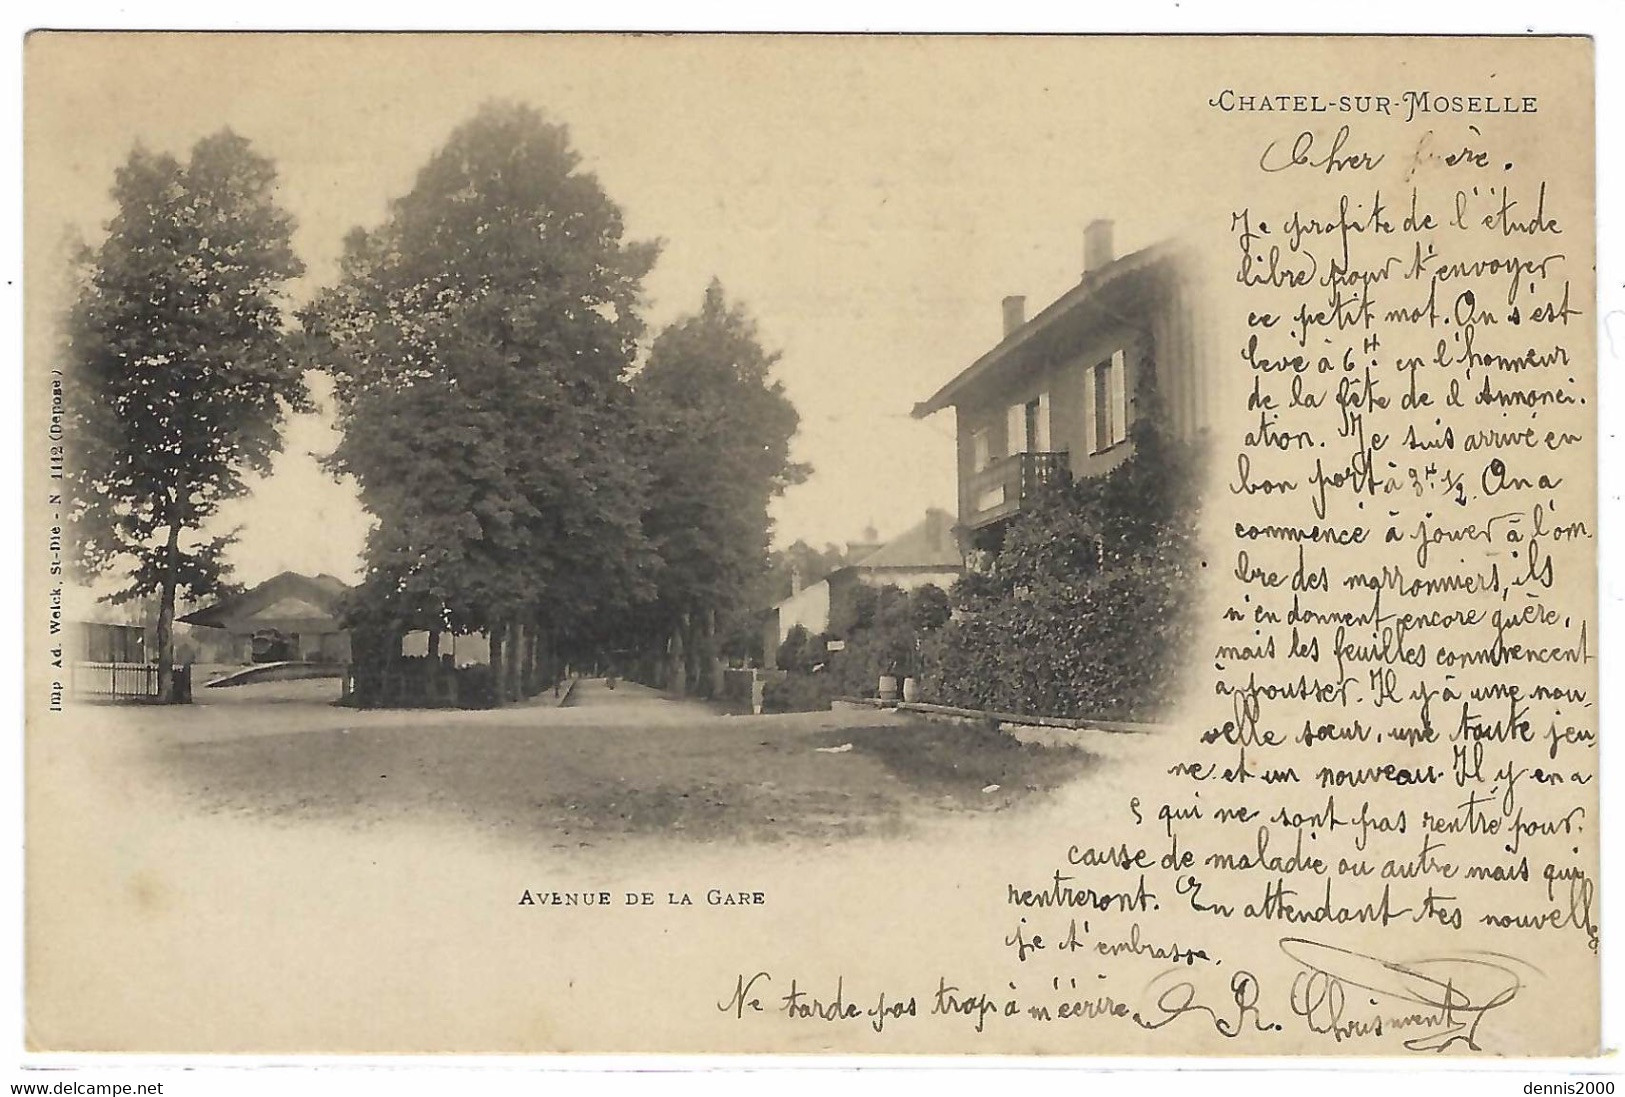 CHATEL-SUR-MOSELLE
Cher frère.
Je profite de l'étude
libre pour t'envoyer
ce petit mot. On s'est
levé à 6H. en l'honneur
de la fête de l'Annonci.
ation. Je suis arrivé en
bon port à 3H 1/2. On a
commencé à jouer à l'om-
bre des marronniers, ils
n'en donnent encore guère,
mais les feuilles commencent
à pousser. Il y à une nou-
velle sœur, une toute jeu-
ne et un nouveau. Il y en a
5 qui ne sont pas rentré pour
cause de maladie ou autre mais qui
rentreront. En attendant tes nouvelles
je t'embrasse.
Ne tarde pas trop à m'écrire.
R. Choisment
AVENUE DE LA GARE
Imp Ad. Weick, St-Dié - N 1142 (Déposé)
delcampe.net
dennis2000